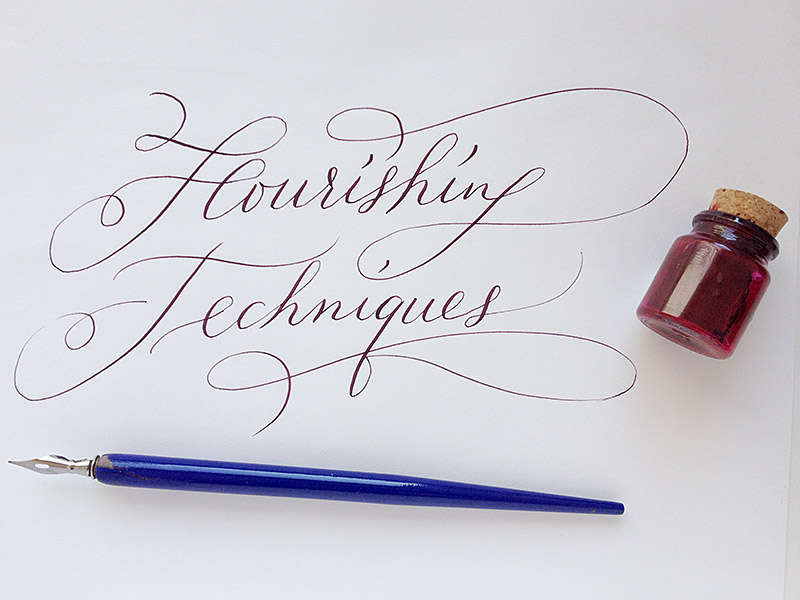 Flourishing
Techniques